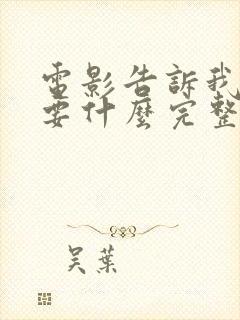 電影告訴我
要什麼完整
吴葉